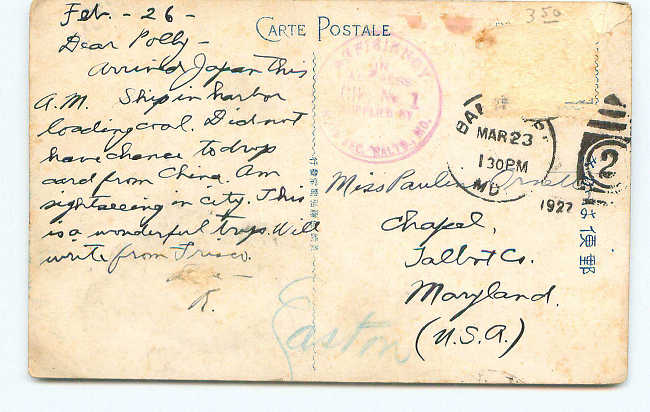 Feb. - 26 -
Dear Polly -
Arrived Japan this
A.M. Ship in harbor
loading coal. Did not
have chance to drop
card from China. Am
sightseeing in city. This
is a wonderful trip. Will
write from Frisco.
R.
CARTE POSTALE
350
DEFICIENCY
IN
No. 1
BALTO., MD.
MAR 23
130 PM
MD.
1927
2
Miss Pauline
Chapel,
Talbot Co.
Maryland.
(U.S.A.)
Easton
郵便はがき